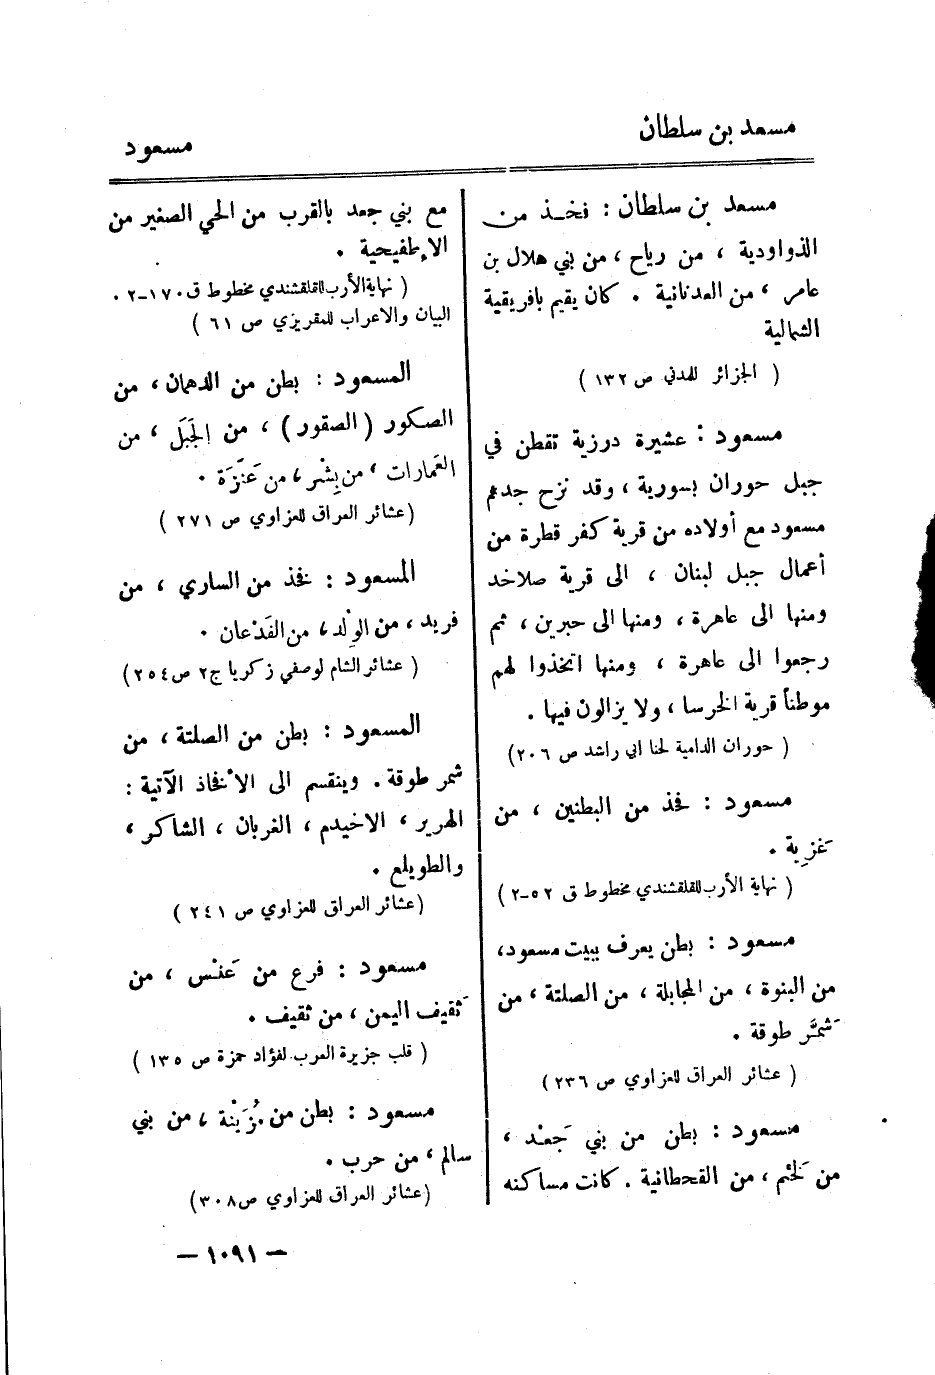 مسعد بن سلطان
مسعود
مسعد بن سلطان : فخـذ من
الذواودية ، من رياح ، من بني هلال بن
عامر ، من العدنانية . كان يقيم بافريقية
الشمالية
( الجزائر للمدني ص ١٣٢ )
مسعود : عشيرة درزية تقطن في
جبل حوران بسورية ، وقد نزح جدهم
مسعود مع أولاده من قرية كفر قطرة من
أعمال جبل لبنان ، الى قرية صلاخد
ومنها الى عاهرة ، ومنها الى حبرين ، ثم
رجعوا الى عاهرة ، ومنها اتخذوا لهم
موطناً قرية الخرسا ، ولا يزالون فيها .
( حوران الدامية لحنا ابي راشد ص ٢٠٦)
مسعود : فخذ من البطنين ، من
غَزِية .
( نهاية الأرب للقلقشندي مخطوط ق ٥٢-٢ )
مسعود : بطن يعرف ببيت مسعود،
من البنوة ، من المجابلة ، من الصلتة ، من
شَمَّر طوقة .
( عشائر العراق للعزاوي ص ٢٣٦ )
مسعود : بطن من بني جَعْد ،
من لَخْم ، من القحطانية . كانت مساكنه
مع بني جعد بالقرب من الحي الصغير من
الإطفيحية .
( نهاية الأرب للقلقشندي مخطوط ق ١٧٠-٢ .
البيان والاعراب للمقريزي ص ٦١ )
المسعود : بطن من الدهمان ، من
الصكور (الصقور) ، من الجَبَل ، من
العَمارات ، من بِشْر ، من عَنَزَة .
(عشائر العراق للعزاوي ص ٢٧١ )
المسعود : فخذ من الساري ، من
فريد ، من الوِلْد ، من الفَدْعان .
( عشائر الشام لوصفي زكريا ج٢ ص ٢٥٤)
المسعود : بطن من الصلتة ، من
شمر طوقة . وينقسم الى الأفخاذ الآتية :
الهرير ، الاخيدم ، الغربان ، الشاكر ،
والطويلع .
(عشائر العراق للعزاوي ص ٢٤١ )
مسعود : فرع من عَنْس ، من
ثَقيف اليمن ، من ثقيف .
( قلب جزيرة العرب لفؤاد حمزة ص ١٣٥ )
مسعود : بطن من مُزَيْنة ، من بني
سالم ، من حرب .
(عشائر العراق للعزاوي ص٣٠٨)
— ١٠٩١ —